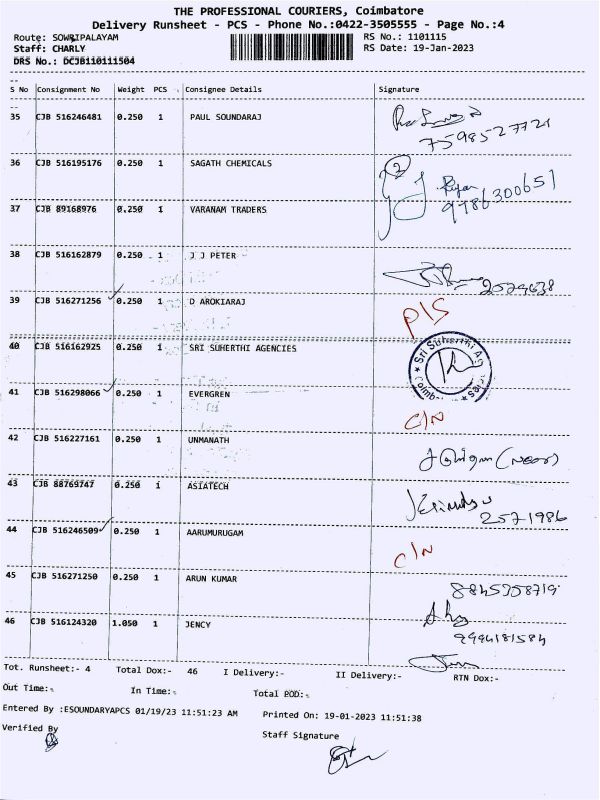 THE PROFESSIONAL COURIERS, Coimbatore
Delivery Runsheet - PCS - Phone No.:0422-3505555 - Page No.:4
Route: SOWRIPALAYAM RS No.: 1101115
Staff: CHARLY RS Date: 19-Jan-2023
DRS No.: DCJB110111504
S No Consignment No Weight PCS Consignee Details Signature
35 CJB 516246481 0.250 1 PAUL SOUNDARAJ
7598527721
36 CJB 516195176 0.250 1 SAGATH CHEMICALS
2
9786300651
37 CJB 89168976 0.250 1 VARANAM TRADERS
38 CJB 516162879 0.250 1 J J PETER
2574638
39 CJB 516271256 0.250 1 D AROKIARAJ
P/S
40 CJB 516162925 0.250 1 SRI SUHERTHI AGENCIES
Sri Suherthi
41 CJB 516298066 0.250 1 EVERGREN
C/N
42 CJB 516227161 0.250 1 UNMANATH
43 CJB 88769747 0.250 1 ASIATECH
2571986
44 CJB 516246509 0.250 1 AARUMURUGAM
C/N
45 CJB 516271250 0.250 1 ARUN KUMAR
46 CJB 516124320 1.050 1 JENCY
9994181584
Tot. Runsheet:- 4 Total Dox:- 46 I Delivery:- II Delivery:- RTN Dox:-
Out Time:- In Time:- Total POD:-
Entered By :ESOUNDARYAPCS 01/19/23 11:51:23 AM Printed On: 19-01-2023 11:51:38
Verified By Staff Signature